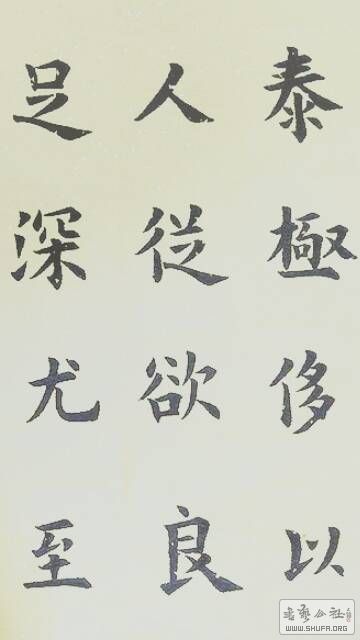 泰極侈以
人從欲良
足深尤至
書法公社
WWW.SHUFA.ORG